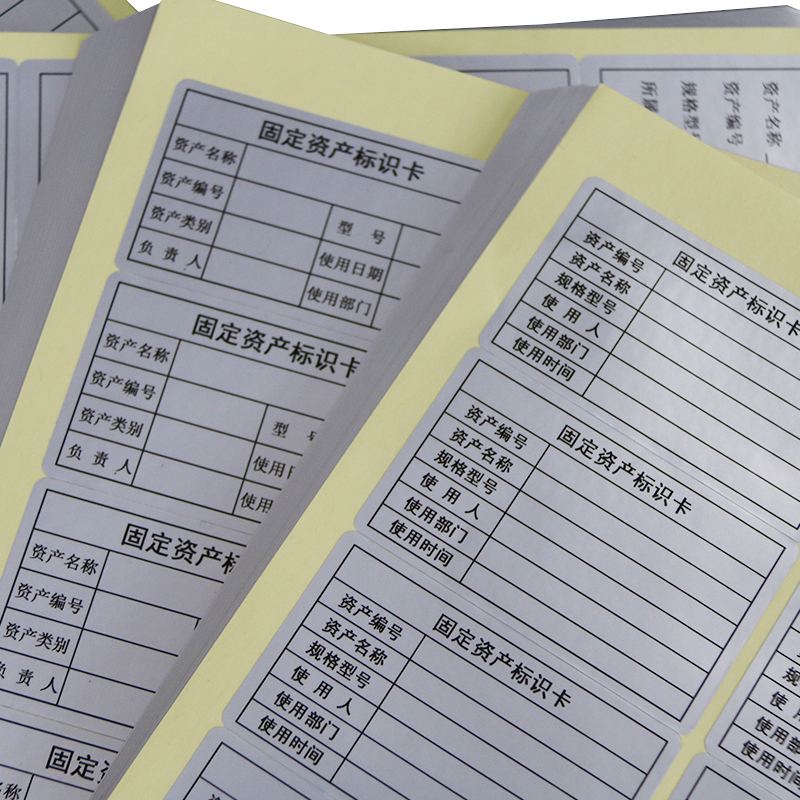 固定资产标识卡
资产名称
资产编号
资产类别 型 号
负 责 人 使用日期
使用部门
固定资产标识卡
资产名称
资产编号
资产类别 型
负 责 人 使用
使用
固定资产标
资产名称
资产编号
资产类别
负 责 人
固定资
资产名称
资产名称
资产编号
规格型
所
固定资产标识卡
资产编号
资产名称
规格型号
使 用 人
使用部门
使用时间
固定资产标识卡
资产编号
资产名称
规格型号
使 用 人
使用部门
使用时间
固定资产标识卡
资产编号
资产名称
规格型号
使 用 人
使用部门
使用时间
使 用
使用部门
使用时间